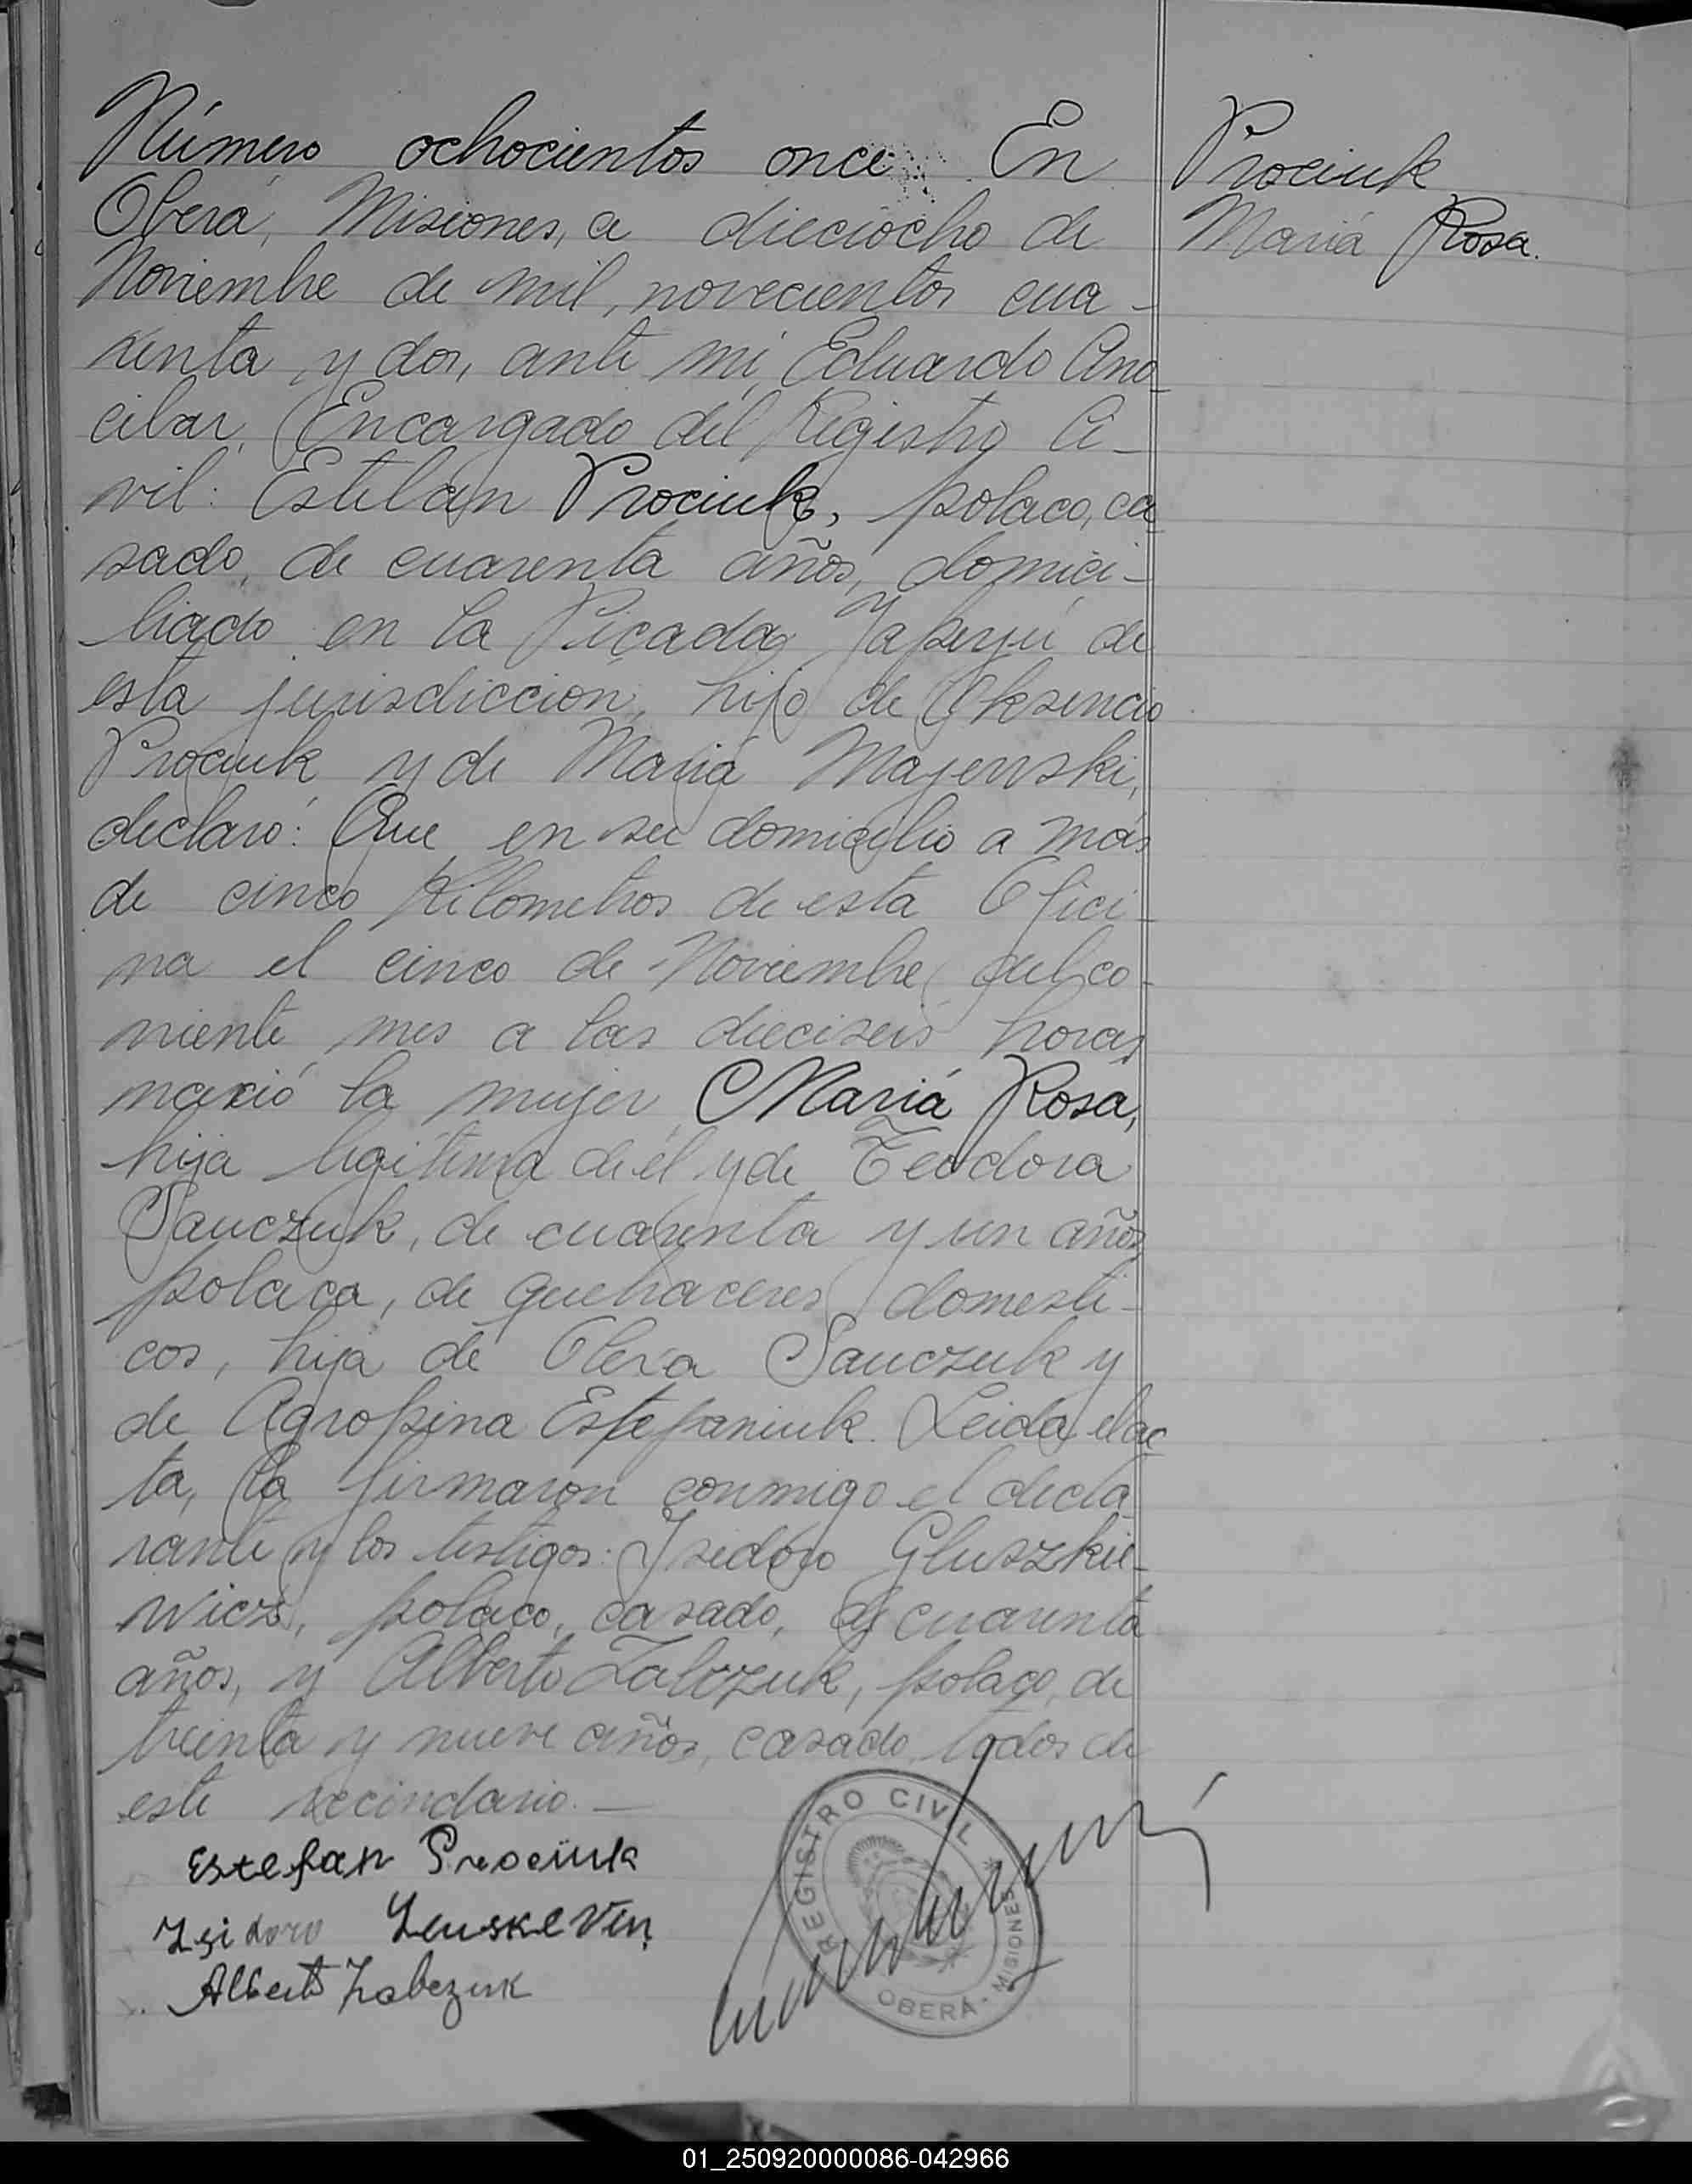 Número ochocientos once. En
Oberá, Misiones, a dieciocho de
Noviembre de mil, novecientos cua-
renta y dos, ante mí, Eduardo Ano-
cibar, Encargado del Registro Ci-
vil: Esteban Prociuk, polaco, ca
sado, de cuarenta años, domici-
liado en la Picada Yapeyú de
esta jurisdicción, hijo de Oksencio
Prociuk y de María Majewski,
declaró: Que en su domicilio a más
de cinco Kilometros de esta Ofici-
na el cinco de Noviembre del co-
rriente mes a las dieciseis horas
nació la mujer María Rosa,
hija legítima de él y de Teodora
Sauczuk, de cuarenta y un años
polaca, de quehaceres domesti-
cos, hija de Olexa Sauczuk y
de Agropina Estefaniuk. Leida el ac
ta, la firmaron conmigo el decla
rante y los testigos: Isidoro Gluszkie-
wicz, polaco, casado, de cuarenta
años, y Alberto Zabczuk, polaco, de
treinta y nueve años, casado, todos de
este vecindario.—
Prociuk
María Rosa.
Estefan Prociuk
Isidoro
Alberto Zabczuk
REGISTRO CIVIL
OBERÁ - MISIONES
01_250920000086-042966